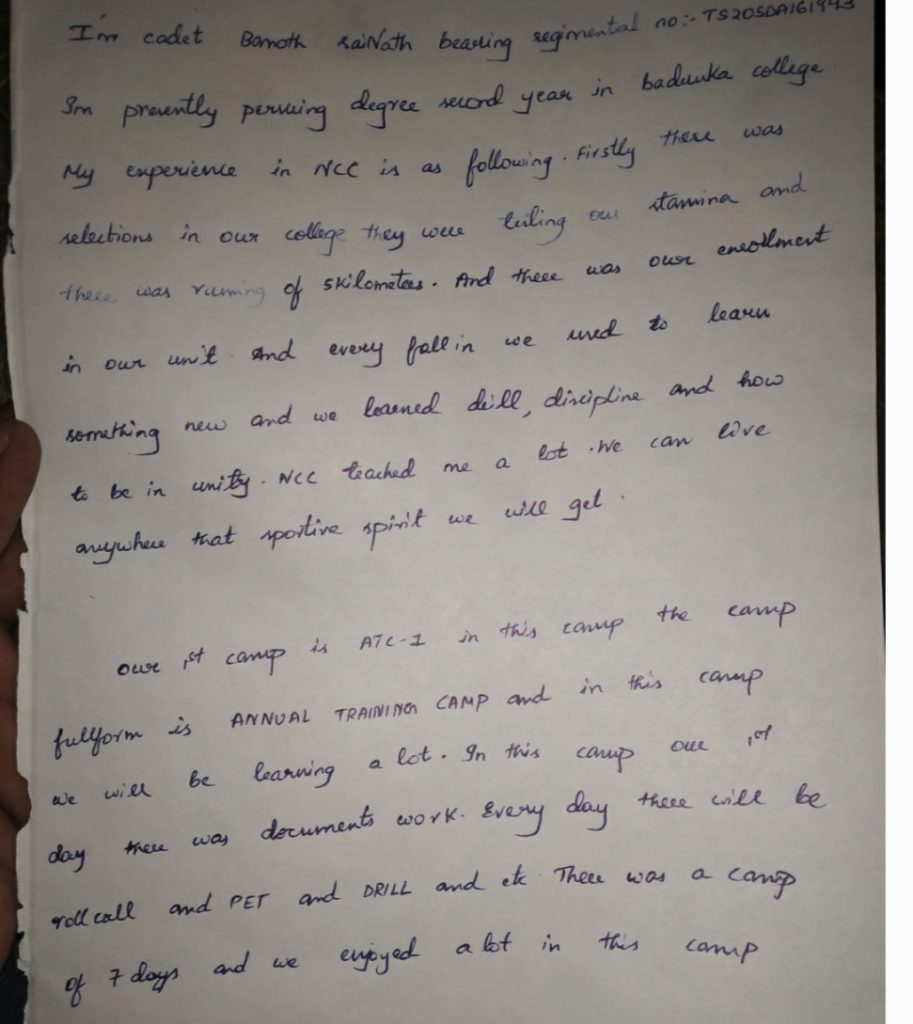 I'm cadet Bamoth saiNath bearing regimental no:- TS20SDA161943
Im presently persuing degree second year in badruka college.
My experience in NCC is as following. Firstly there was
selections in our college they were testing our stamina and
there was running of 5kilometers. And there was our enrollment
in our unit and every fallin we used to learn
something new and we learned drill, discipline and how
to be in unity. NCC teached me a lot. We can live
anywhere that sportive spirit we will get.
our 1st camp is ATC-1 in this camp the camp
fullform is ANNUAL TRAINING CAMP and in this camp
we will be learning a lot. In this camp our 1st
day there was documents work. Every day there will be
roll call and PET and DRILL and etc There was a camp
of 7 days and we enjoyed a lot in this camp